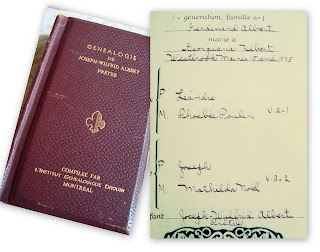 GENEALOGIE
DE
JOSEPH-WILFRID ALBERT
PRÊTRE
COMPILÉE PAR
L'INSTITUT GÉNÉALOGIQUE DROUIN
MONTREAL
génération, famille no 1
Ferdinand Albert
marié à
Georgiana Hebert
Westbrook Maine
P Léandre
V-2-1
M. Phoebée Poulin
P Joseph
V-2-2
M. Mathilda Noel
fant Joseph-Wilfrid Albert
(Prêtre)